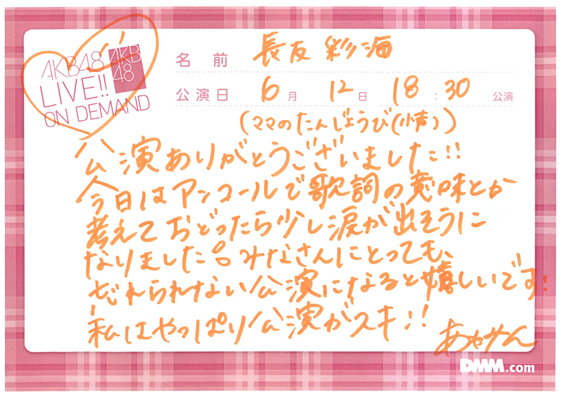 AKB48
LIVE!!
ON DEMAND
AKB
48
名前 長友 彩海
公演日 6月 12日 18:30 公演
(ママのたんじょうび(小声))
公演ありがとうございました!!
今日はアンコールで歌詞の意味とか
考えておどったら少し涙が出そうに
なりました。みなさんにとっても、
忘れられない公演になると嬉しいです!
私はやっぱり公演がスキ!!
あやみん
DMM.com